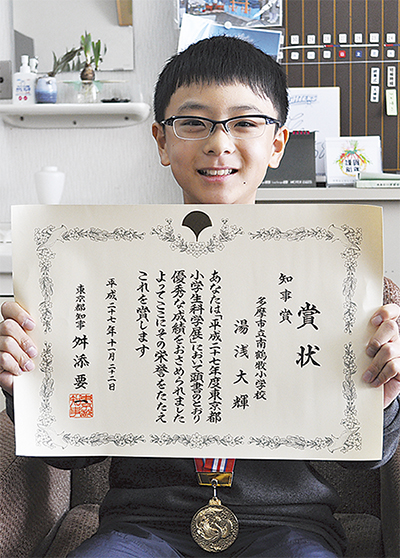 賞状
知事賞
多摩市立南鶴牧小学校
湯浅大輝
あなたは「平成二十七年度東京都
小学生科学展」において頭書のとおり
優秀な成績をおさめられました
よってここにその栄誉をたたえ
これを賞します
平成二十七年十一月二十二日
東京都知事 舛添要一